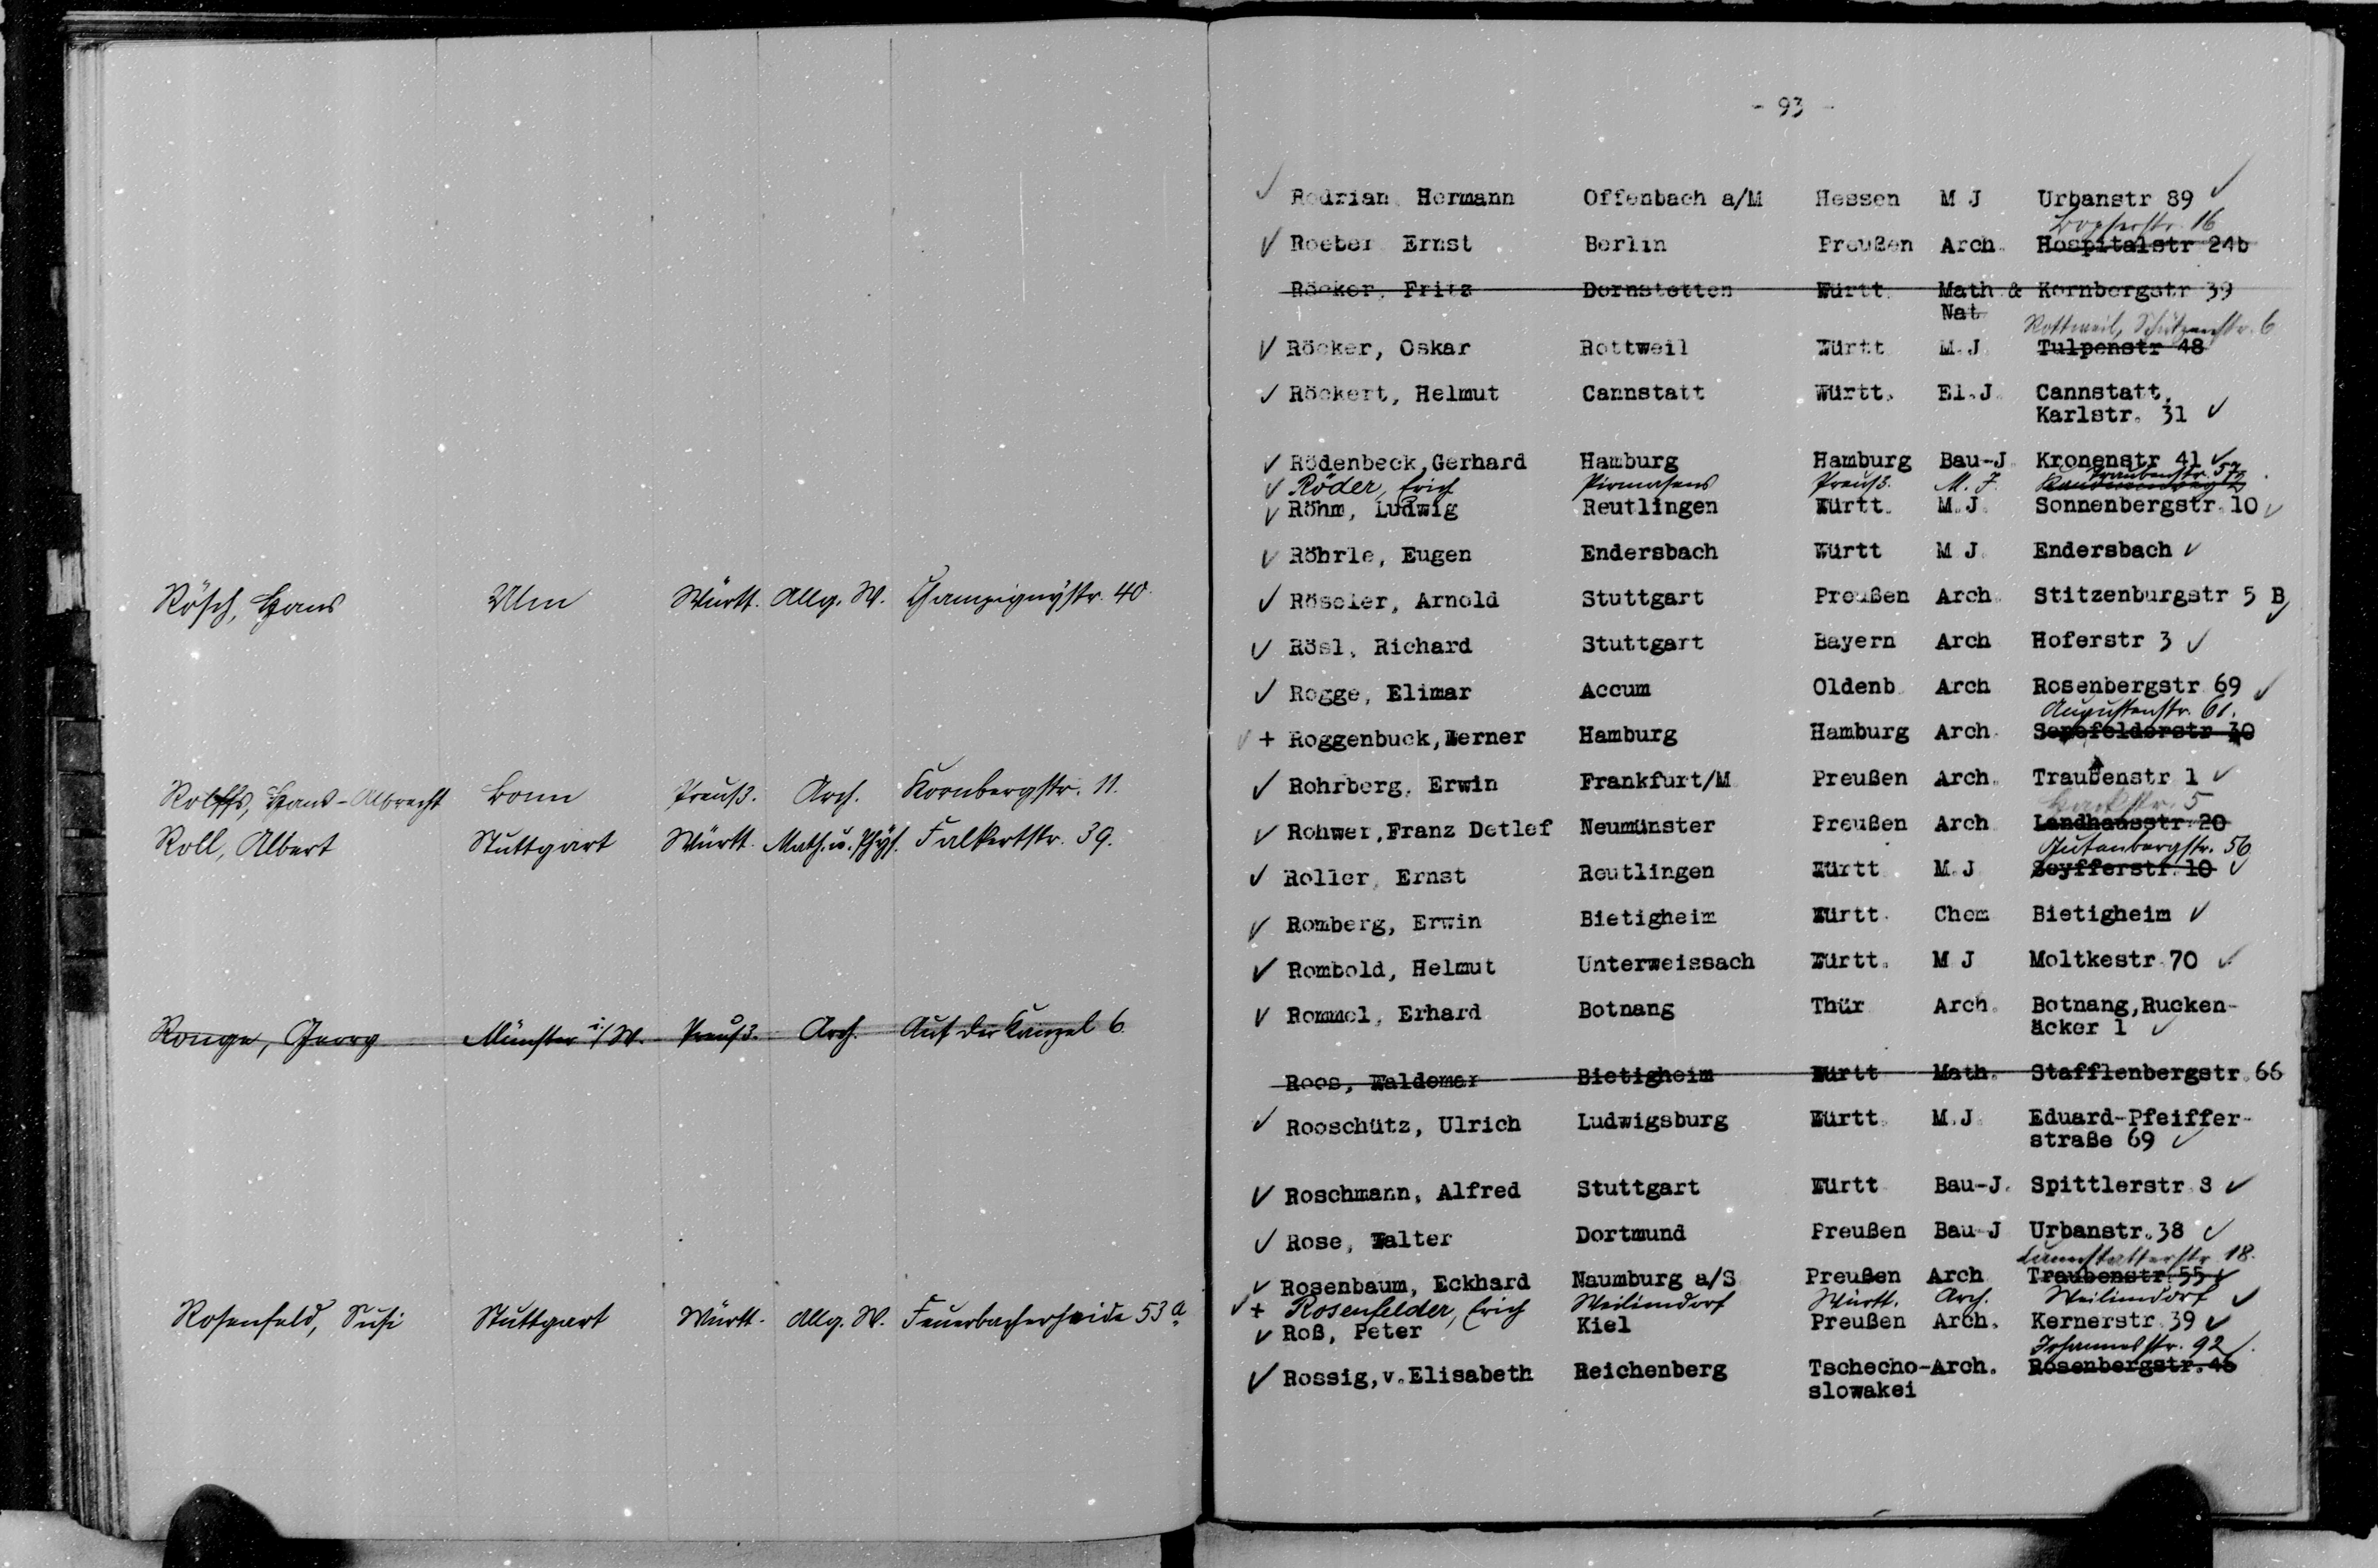 Rösch, Hans Ulm Württ. Allg. W. Champignystr. 40.
Rolffs, Hans-Albrecht Bonn Preuß. Arch. Kornbergstr. 11.
Roll, Albert Stuttgart Württ. Math. u. Phys. Falkertstr. 39.
Ronge, Georg Münster i/W. Preuß. Arch. Auf der Kanzel 6
Rosenfeld, Susi Stuttgart Württ. Allg. W. Feuerbacherheide 53a
- 93 -
Rodrian Hermann Offenbach a/M Hessen M J Urbanstr 89
Bopserstr. 16
Roeber Ernst Berlin Preußen Arch. Hospitalstr 24b
Röcker, Fritz Dornstetten Württ Math & Kornbergstr 39
Nat
Rottweil, Schützenstr. 6
Röcker, Oskar Rottweil Württ M.J Tulpenstr 48
Röckert, Helmut Cannstatt Württ. El.J Cannstatt,
Karlstr. 31
Rödenbeck,Gerhard Hamburg Hamburg Bau-J. Kronenstr 41
Traubenstr. 57
Röder, Erich Pirmasens Preuß. M. J.
Röhm, Ludwig Reutlingen Württ. M.J. Sonnenbergstr.10
Röhrle, Eugen Endersbach Württ M J. Endersbach
Röseler, Arnold Stuttgart Preußen Arch. Stitzenburgstr 5 B
Rösl, Richard Stuttgart Bayern Arch Hoferstr 3
Rogge, Elimar Accum Oldenb Arch Rosenbergstr 69
Augustenstr. 61.
+ Roggenbuck,Werner Hamburg Hamburg Arch. Senefelderstr 30
Rohrberg, Erwin Frankfurt/M Preußen Arch. Traubenstr 1
Hackstr. 5
Rohwer,Franz Detlef Neumünster Preußen Arch Landhausstr.20
Gutenbergstr. 56
Roller, Ernst Reutlingen Württ M.J Seyfferstr.10
Romberg, Erwin Bietigheim Württ. Chem Bietigheim
Rombold, Helmut Unterweissach Württ. M J Moltkestr.70
Rommel, Erhard Botnang Thür Arch. Botnang,Rucken-
äcker 1
Roos, Waldemar Bietigheim Württ Math. Stafflenbergstr.66
Rooschütz, Ulrich Ludwigsburg Württ. M.J. Eduard-Pfeiffer-
straße 69
Roschmann, Alfred Stuttgart Württ Bau-J. Spittlerstr.8
Rose, Walter Dortmund Preußen Bau-J Urbanstr.38
Cannstatterstr. 18.
Rosenbaum, Eckhard Naumburg a/S Preußen Arch Traubenstr.55
+ Rosenfelder, Erich Weilimdorf Württ. Arch. Weilimdorf
Roß, Peter Kiel Preußen Arch. Kernerstr.39
Johannesstr. 92
Rossig,v.Elisabeth Reichenberg Tschecho-Arch. Rosenbergstr.46
slowakei